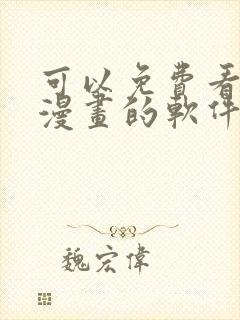 可以免費看
漫畫的軟件
魏宏偉